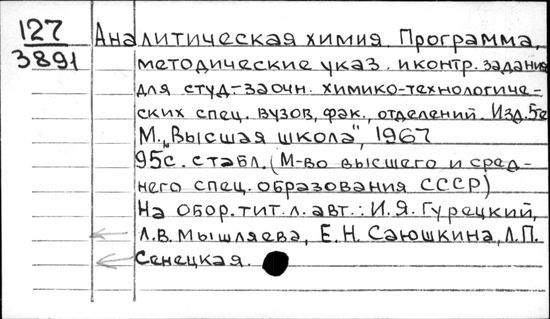 127
3891
Аналитическая химия. Программа,
методические указ. и контр. задания
для студ-заочн. химико-технологиче-
ских спец. вузов, фак., отделений. Изд. 5е
М., "Высшая школа", 1967
95с. с табл. (М-во высшего и сред-
него спец. образования СССР)
На обор. тит. л. авт.: И.Я. Гурецкий,
Л.В. Мышляева, Е.Н. Саюшкина, Л.П.
Сенецкая.